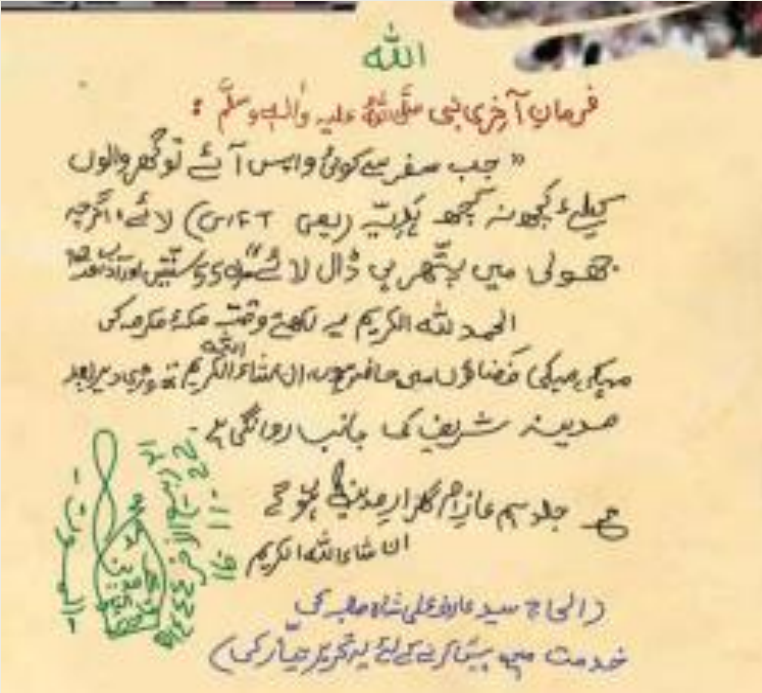 اللہ
فرمانِ آخری نبی صلَّی اللہُ علیہ واٰلہٖ وسلَّم :
"جب سفر سے کوئی واپس آئے تو گھر والوں
کیلئے کچھ نہ کچھ ہَدِیّہ (یعنی GIFT) لائے، اگرچہ
جھولی میں پتّھر ہی ڈال لائے" سنتیں اور آداب
الحمد للہ الکریم یہ لکھتے وقت مکۂ مکرمہ کی
مہکی مہکی فضاؤں میں حاضر ہوں، ان شاء اللہ الکریم تھوڑی دیر بعد
مدینہ شریف کی جانب روانگی ہے۔
جلد ہم عازمِ گلزارِ مدینہ ہوں گے
ان شاء اللہ الکریم
ربیع الآخر ١٤٤٤
(الحاج سید عارف علی شاہ صاحب کی
خدمت میں پیش کرنے کے لئے یہ تحریر تیّار کی)